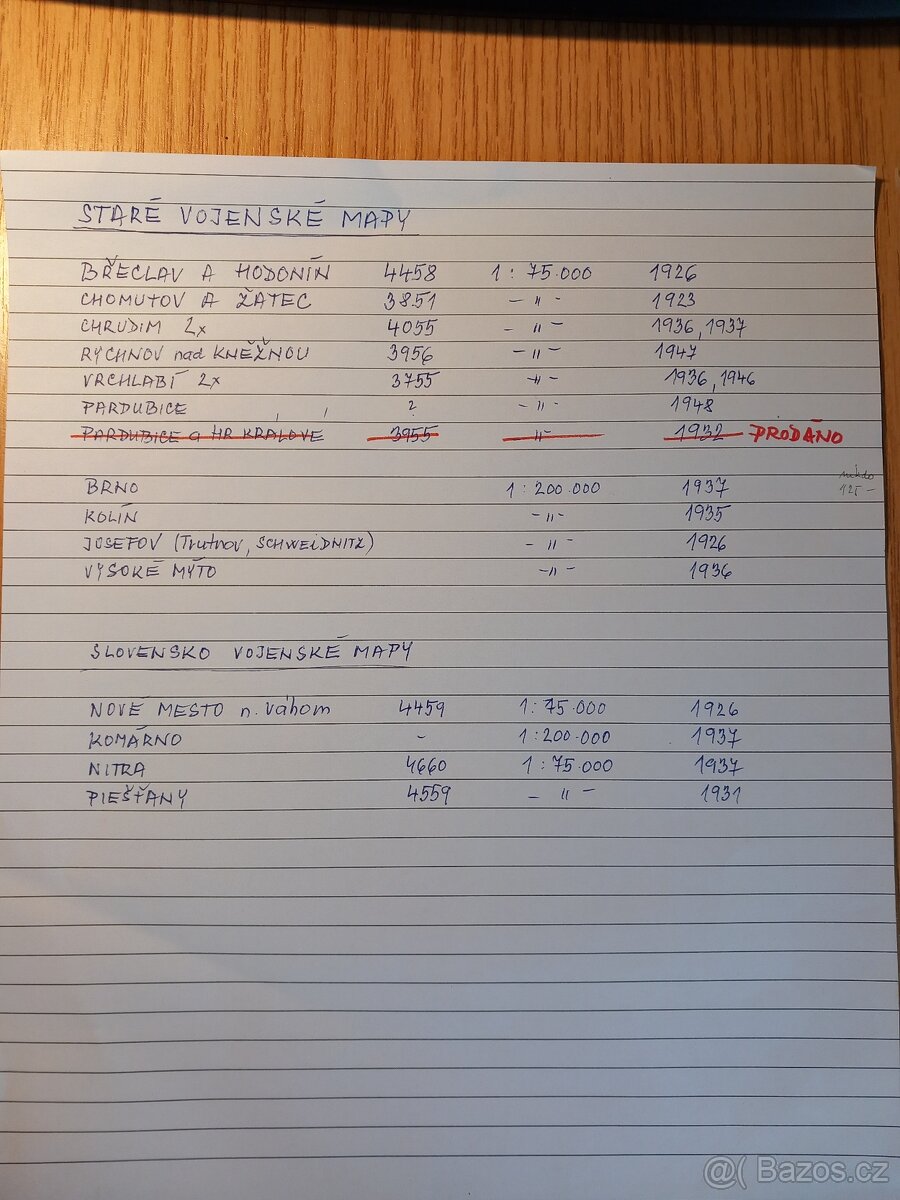 STARÉ VOJENSKÉ MAPY
BŘECLAV A HODONÍN 4458 1 : 75.000 1926
CHOMUTOV A ŽATEC 3851 – " – 1923
CHRUDIM 2x 4055 – " – 1936, 1937
RYCHNOV nad KNĚŽNOU 3956 – " – 1947
VRCHLABÍ 2x 3755 – " – 1936, 1946
PARDUBICE ? – " – 1948
PARDUBICE a HR KRÁLOVÉ 3955 " 1932 PRODÁNO
BRNO 1 : 200.000 1937
KOLÍN – " – 1935
JOSEFOV (Trutnov, SCHWEIDNITZ) – " – 1926
VYSOKÉ MÝTO – " – 1936
SLOVENSKO VOJENSKÉ MAPY
NOVÉ MESTO n. Váhom 4459 1 : 75.000 1926
KOMÁRNO – 1:200.000 1937
NITRA 4660 1 : 75.000 1937
PIEŠŤANY 4559 – " – 1931
@( Bazos.cz